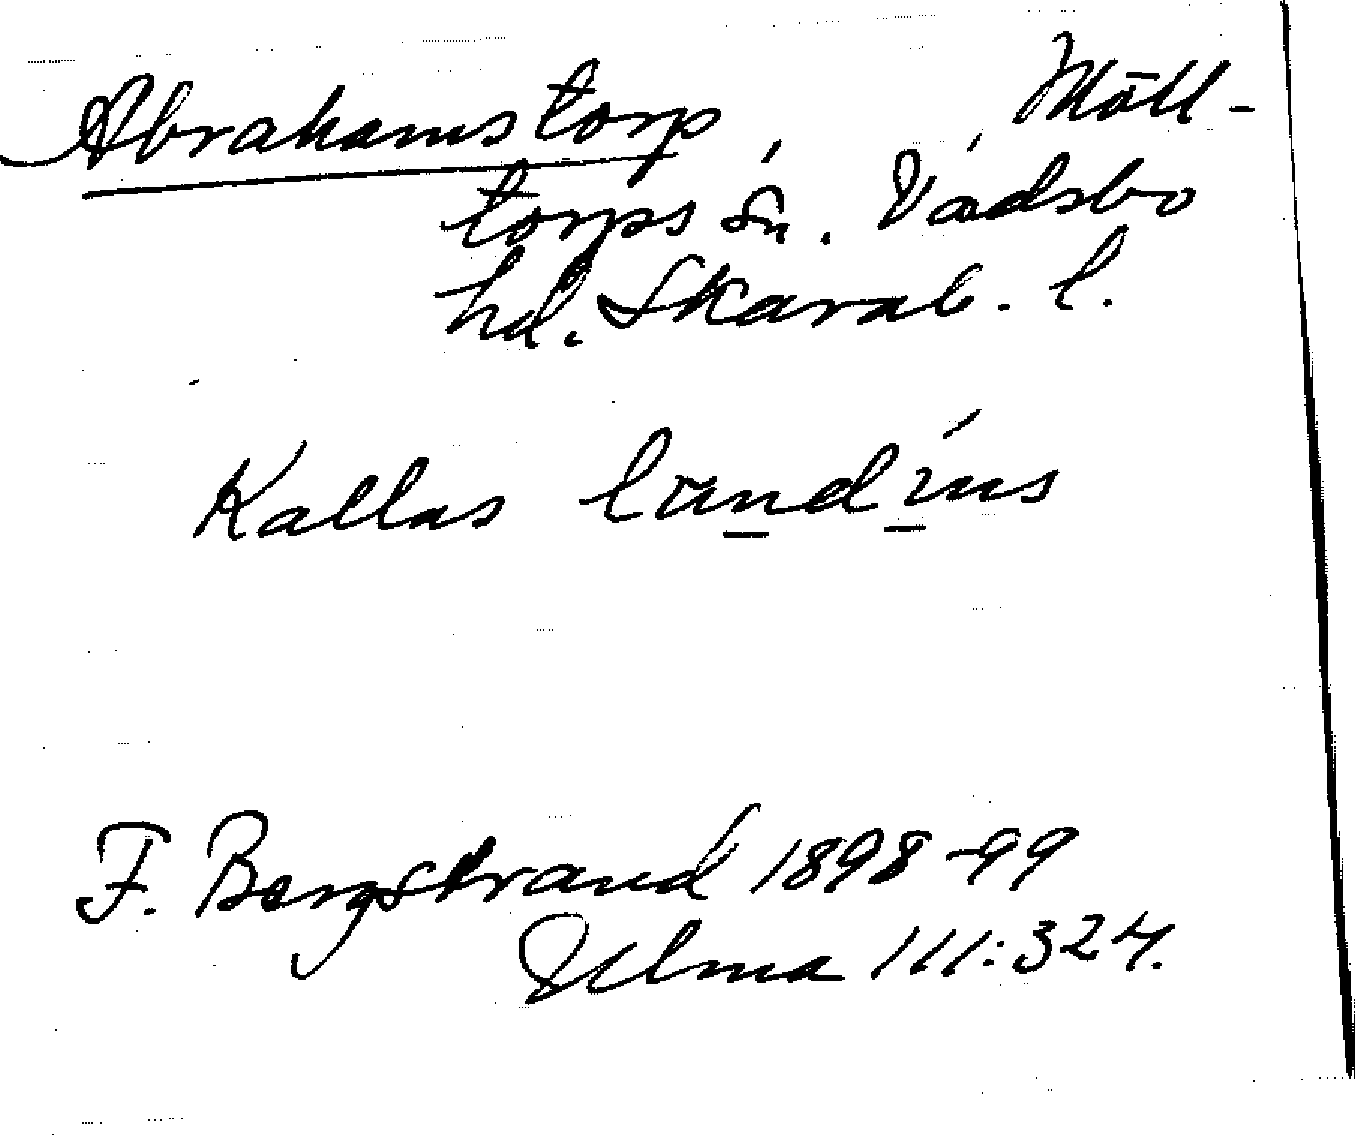 Abrahamstorp, Mölltorps sn. Vadsbo
hd. Skarab. l.
Kallas lund ins
F. Bergstrand 1898-99
Ulma 111:324.